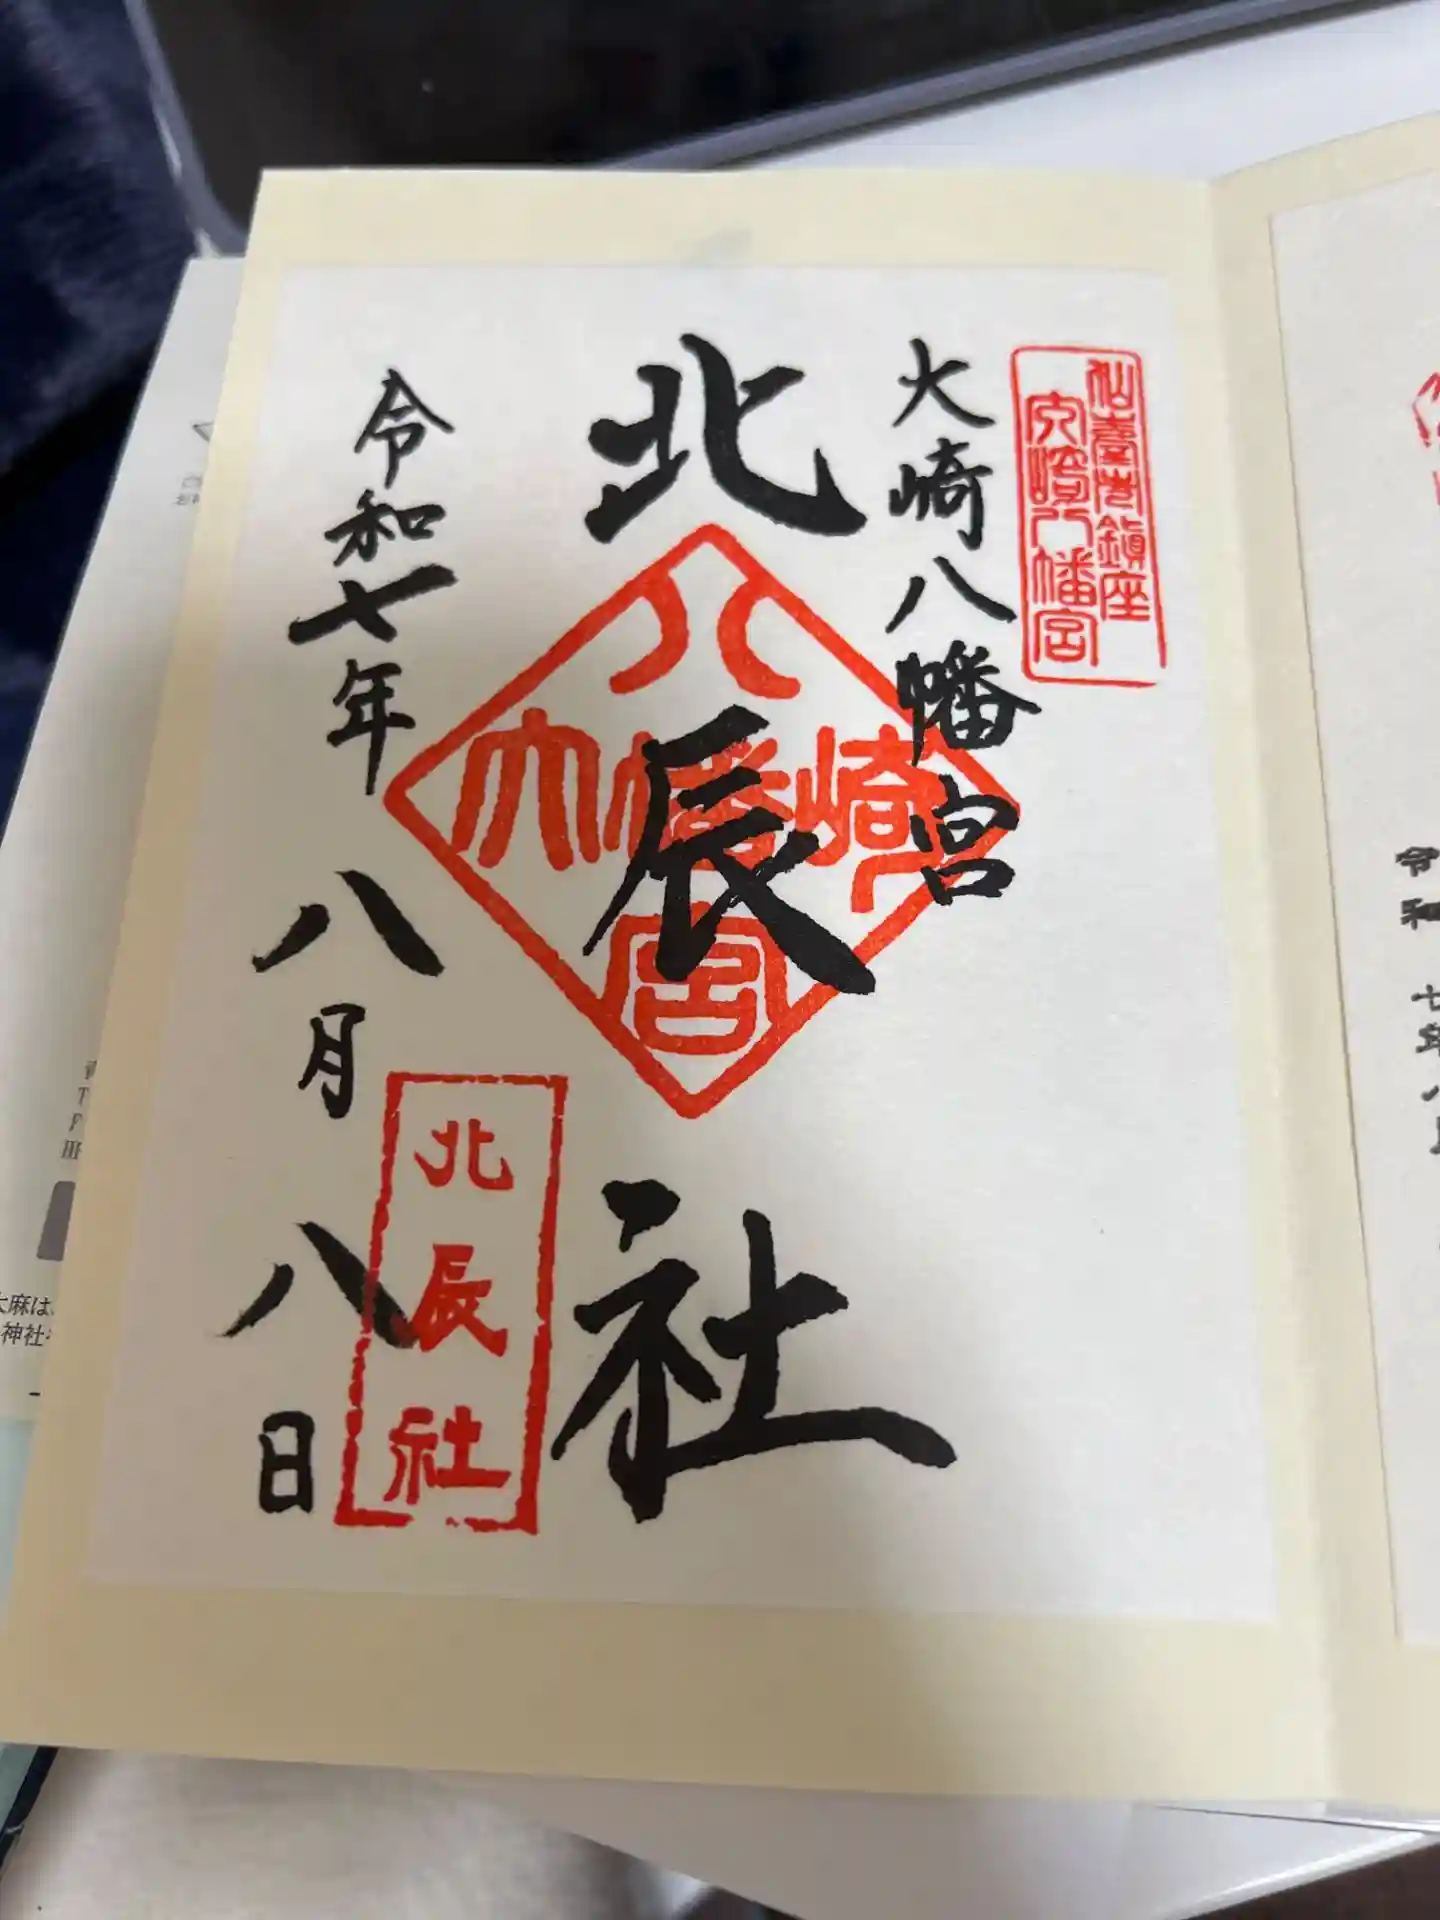 仙臺北鎮座
大崎八幡宮
大崎八幡宮
北辰社
八
大幡崎
宮
令和七年
八月八日
北辰社
令和七年八
大麻は
神社